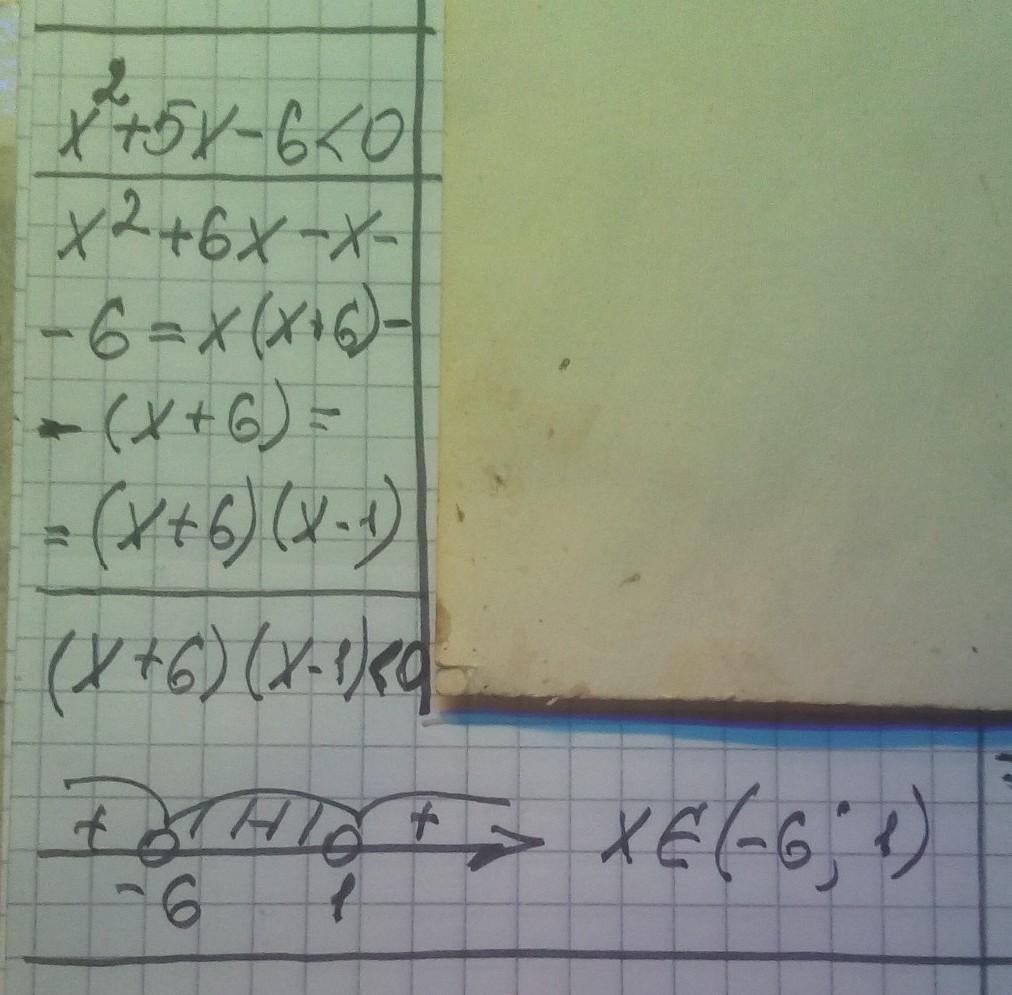 x²+5x-6<0
x²+6x-x-
-6=x(x+6)-
-(x+6)=
=(x+6)(x-1)
(x+6)(x-1)<0
+ - +
x∈(-6;1)
-6 1